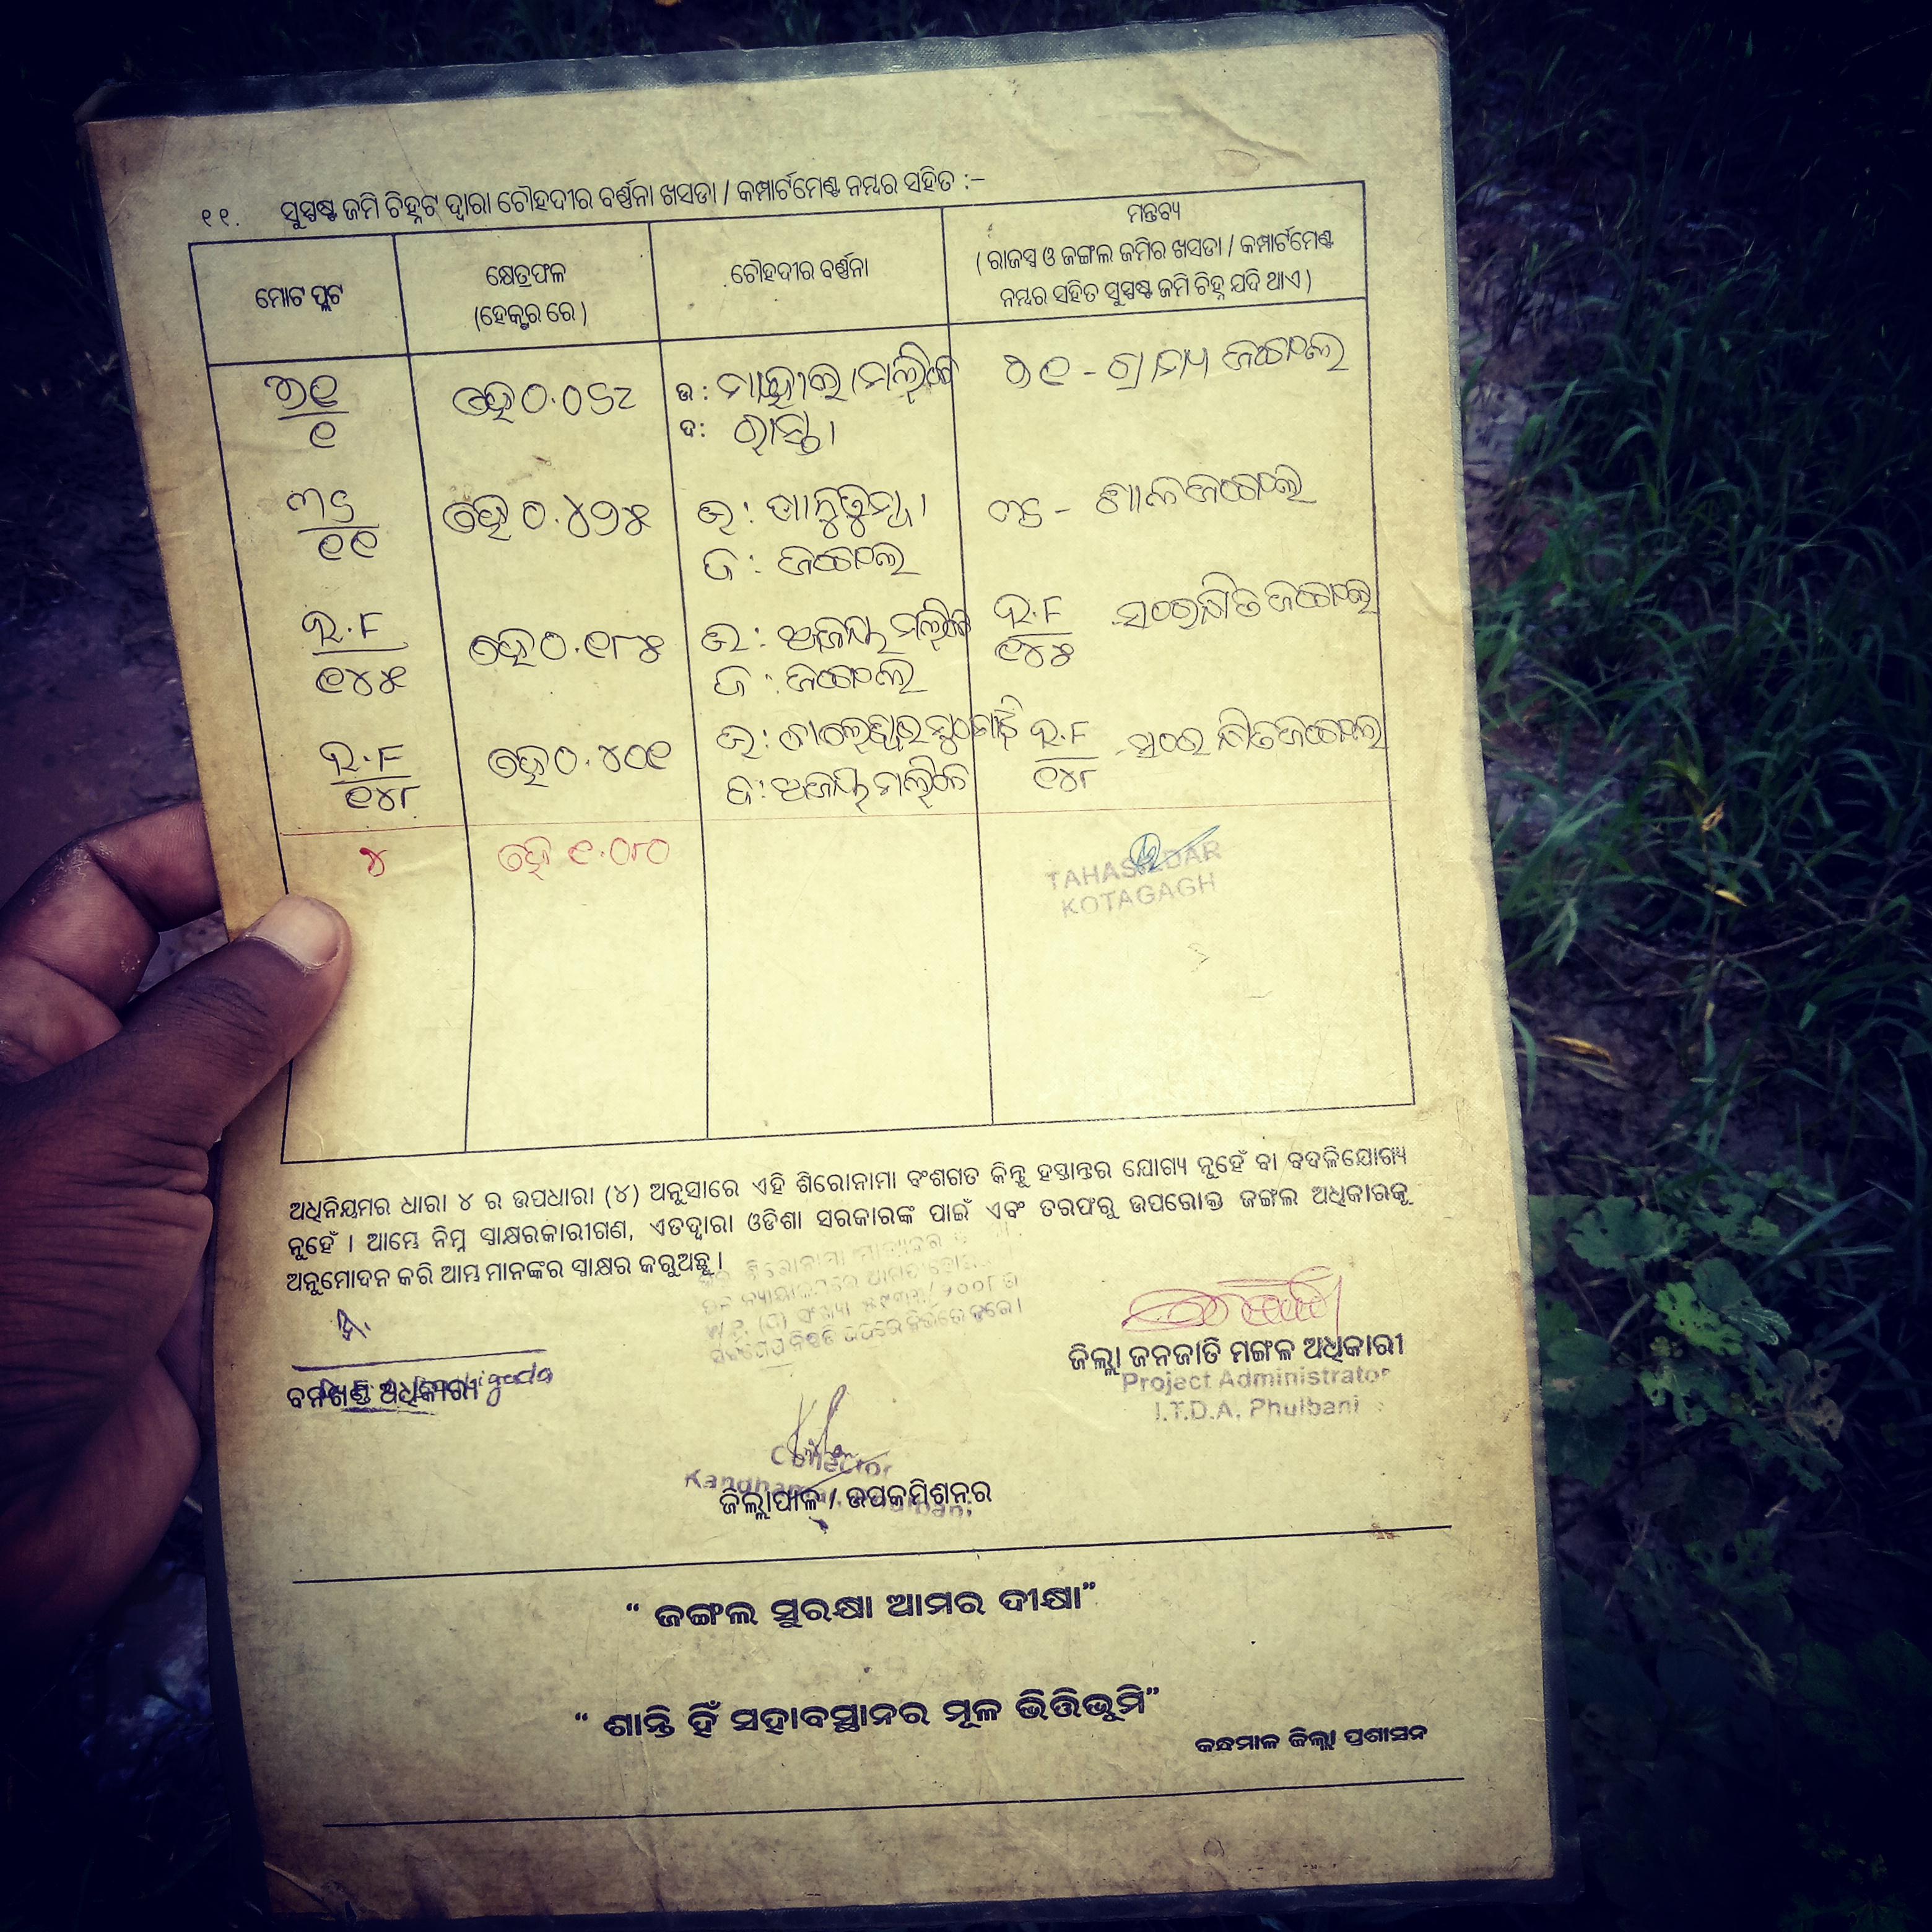 ୧୧. ସୁସ୍ପଷ୍ଟ ଜମି ଚିହ୍ନଟ ଦ୍ୱାରା ଚୌହଦୀର ବର୍ଣ୍ଣନା ଖସଡା / କମ୍ପାର୍ଟମେଣ୍ଟ ନମ୍ବର ସହିତ :–
ମୋଟ ପ୍ଲଟ
କ୍ଷେତ୍ରଫଳ
(ହେକ୍ଟର ରେ)
ଚୌହଦୀର ବର୍ଣ୍ଣନା
ମନ୍ତବ୍ୟ
( ରାଜସ୍ୱ ଓ ଜଙ୍ଗଲ ଜମିର ଖସଡା / କମ୍ପାର୍ଟମେଣ୍ଟ
ନମ୍ବର ସହିତ ସୁସ୍ପଷ୍ଟ ଜମି ଚିହ୍ନ ଯଦି ଥାଏ )
୭୧
୧
ହେ ୦.୦୬୯
ଉ : ମଲ୍ଲିକ
ଦ: ରାସ୍ତା
୭୧ - ଗ୍ରାମ୍ୟ ଜଙ୍ଗଲ
୩୬
୧୧
ହେ ୦.୪୨୫
ଉ :
ଦ : ଜଙ୍ଗଲ
୩୬ - ଜଙ୍ଗଲ
ର.ଫ
୧୪୫
ହେ ୦.୧୮୫
ଉ : ଅଜୟ ମଲ୍ଲିକ
ଦ : ଜଙ୍ଗଲ
ର.ଫ
୧୪୫
ସଂରକ୍ଷିତ ଜଙ୍ଗଲ
ର.ଫ
୧୪୮
ହେ ୦.୪୦୧
ଉ :
ଦ : ଅଜୟ ମଲ୍ଲିକ
ର.ଫ
୧୪୮
ସଂରକ୍ଷିତ ଜଙ୍ଗଲ
୪
ହେ ୧.୦୮୦
TAHASILDAR
KOTAGAGH
ଅଧିନିୟମର ଧାରା ୪ ର ଉପଧାରା (୪) ଅନୁସାରେ ଏହି ଶିରୋନାମା ବଂଶଗତ କିନ୍ତୁ ହସ୍ତାନ୍ତର ଯୋଗ୍ୟ ନୁହେଁ ବା ବଦଳିଯୋଗ୍ୟ
ନୁହେଁ । ଆମ୍ଭେ ନିମ୍ନ ସ୍ୱାକ୍ଷରକାରୀଗଣ, ଏତଦ୍ୱାରା ଓଡିଶା ସରକାରଙ୍କ ପାଇଁ ଏବଂ ତରଫରୁ ଉପରୋକ୍ତ ଜଙ୍ଗଲ ଅଧିକାରକୁ
ଅନୁମୋଦନ କରି ଆମ୍ଭ ମାନଙ୍କର ସ୍ୱାକ୍ଷର କରୁଅଛୁ ।
ବନଖଣ୍ଡ ଅଧିକାରୀ
ଜିଲ୍ଲା ଜନଜାତି ମଙ୍ଗଳ ଅଧିକାରୀ
Project Administrator
I.T.D.A, Phulbani
Collector
ଜିଲ୍ଲାପାଳ / ଉପକମିଶନର
“ ଜଙ୍ଗଲ ସୁରକ୍ଷା ଆମର ଦୀକ୍ଷା”
“ ଶାନ୍ତି ହିଁ ସହାବସ୍ଥାନର ମୂଳ ଭିତ୍ତିଭୂମି”
କନ୍ଧମାଳ ଜିଲ୍ଲା ପ୍ରଶାସନ